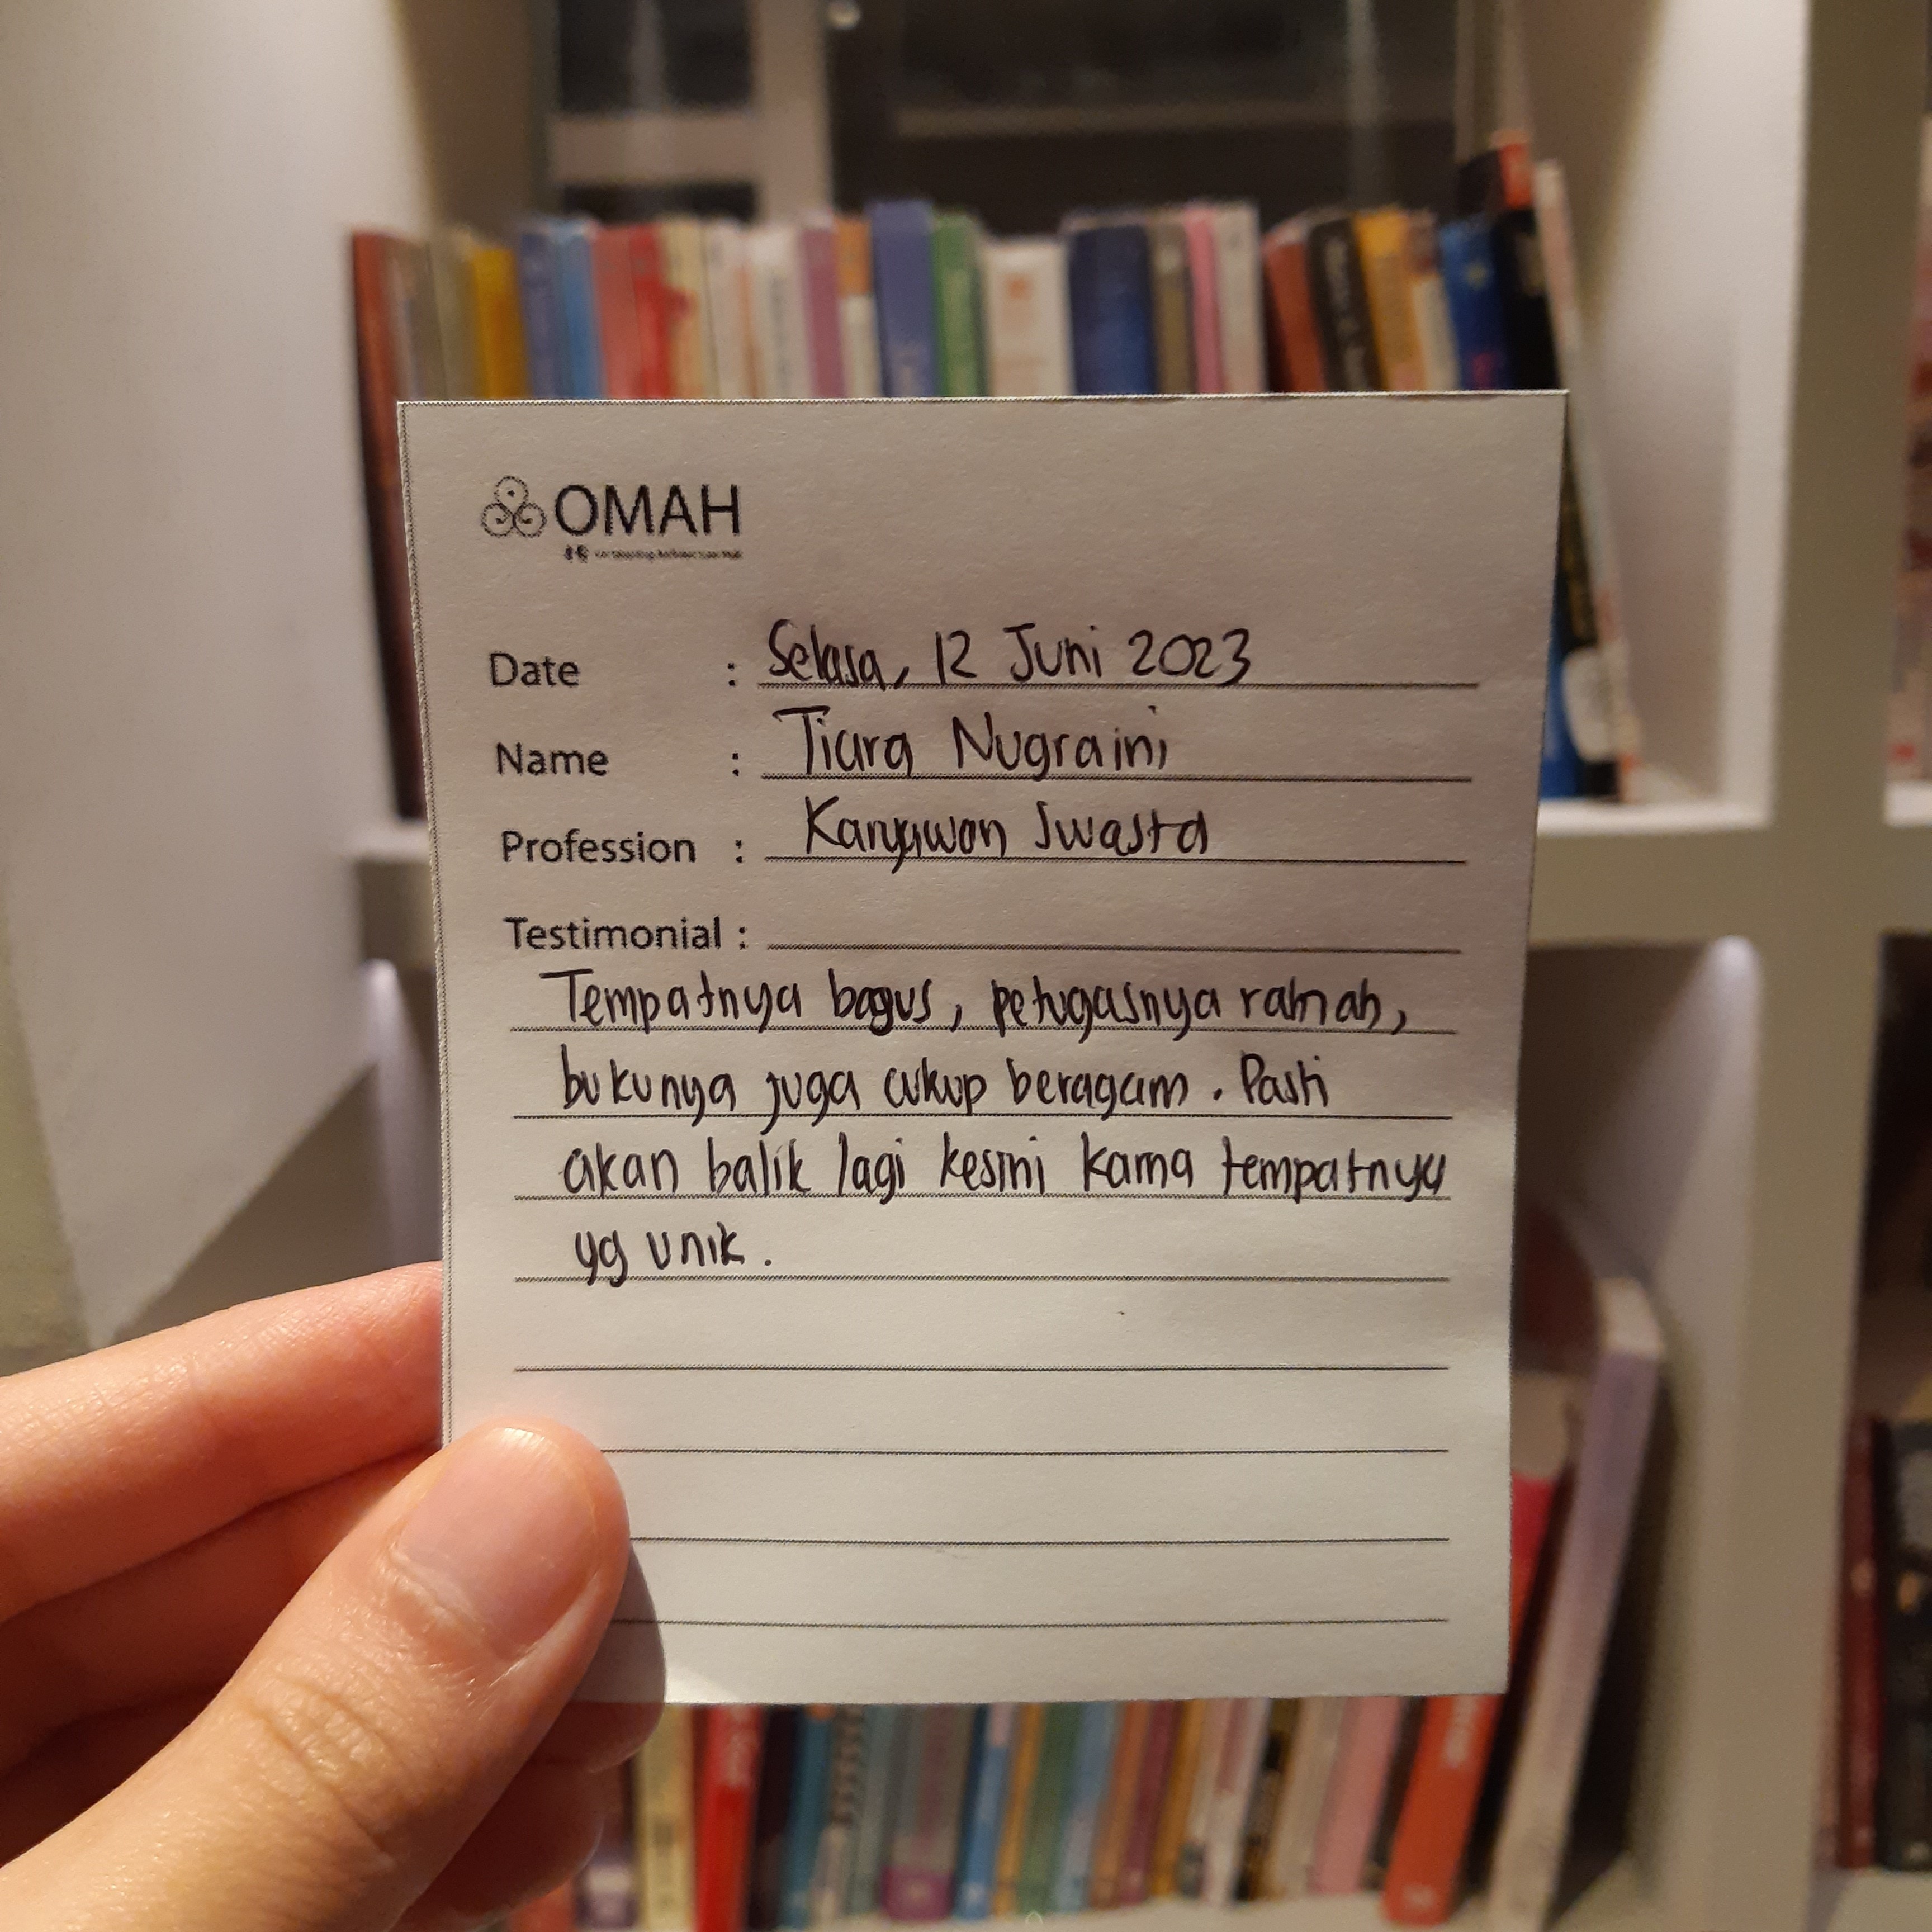 OMAH
Date : Selasa, 12 Juni 2023
Name : Tiara Nugraini
Profession : Karyawan Swasta
Testimonial :
Tempatnya bagus, petugasnya ramah,
bukunya juga cukup beragam. Pasti
akan balik lagi kesini karna tempatnya
yg unik.